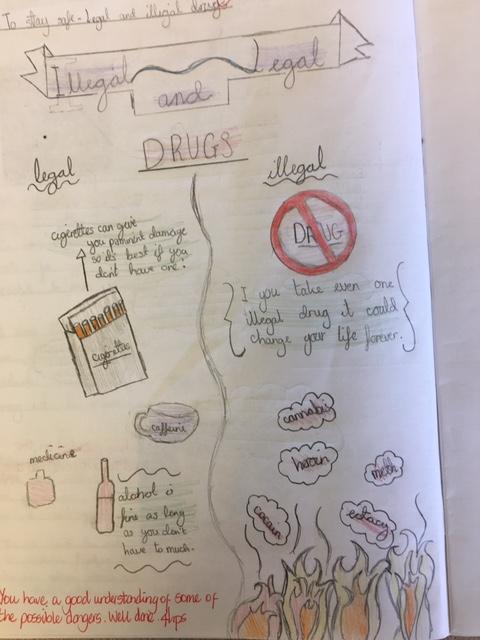 To stay safe - Legal and illegal drugs
Illegal
and
Legal
DRUGS
legal
cigerettes can give
you pominent damage
so it's best if you
don't have one!
cigerettes
caffeine
medicine
alcohol is
fine as long
as you don't
have to much.
illegal
DRUG
I you take even one
illegal drug it could
change your life forever.
cannabis
heroin
meth
cocain
ectacy
You have a good understanding of some of
the possible dangers. Well done!